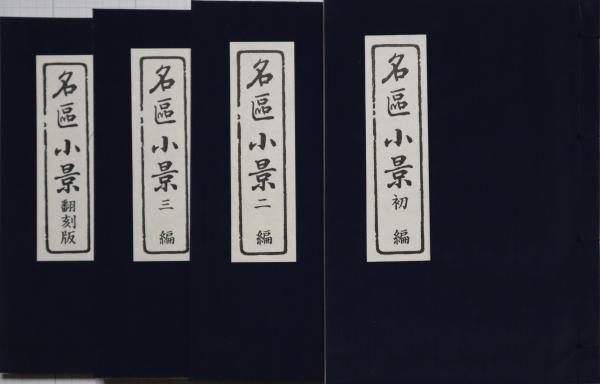 名區小景 初編
名區小景 二編
名區小景 三編
名區小景 翻刻版